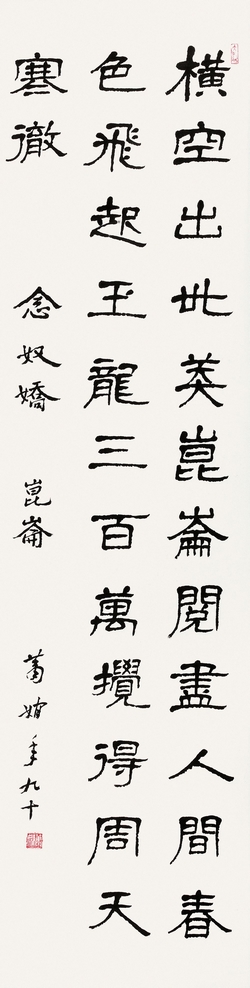 橫空出世莽崑崙閱盡人間春
色飛起玉龍三百萬攪得周天
寒徹
念奴嬌 崑崙
蕭娴年九十